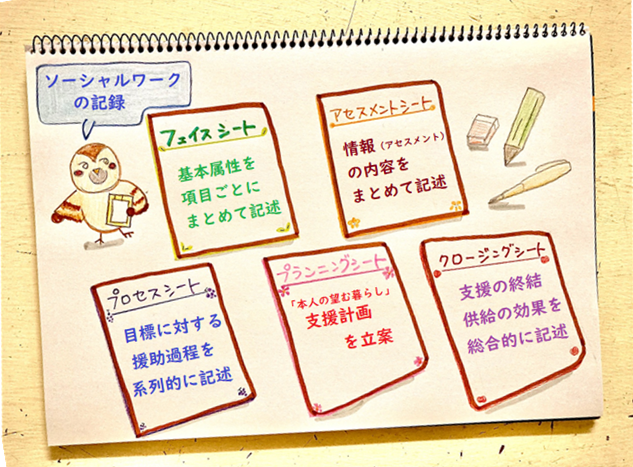 ソーシャルワーク
の記録
フェイスシート
基本属性を
項目ごとに
まとめて記述
アセスメントシート
情報（アセスメント）
の内容を
まとめて記述
プロセスシート
目標に対する
援助過程を
系列的に記述
プランニングシート
「本人の望む暮らし」
支援計画
を立案
クロージングシート
支援の終結
供給の効果を
総合的に記述